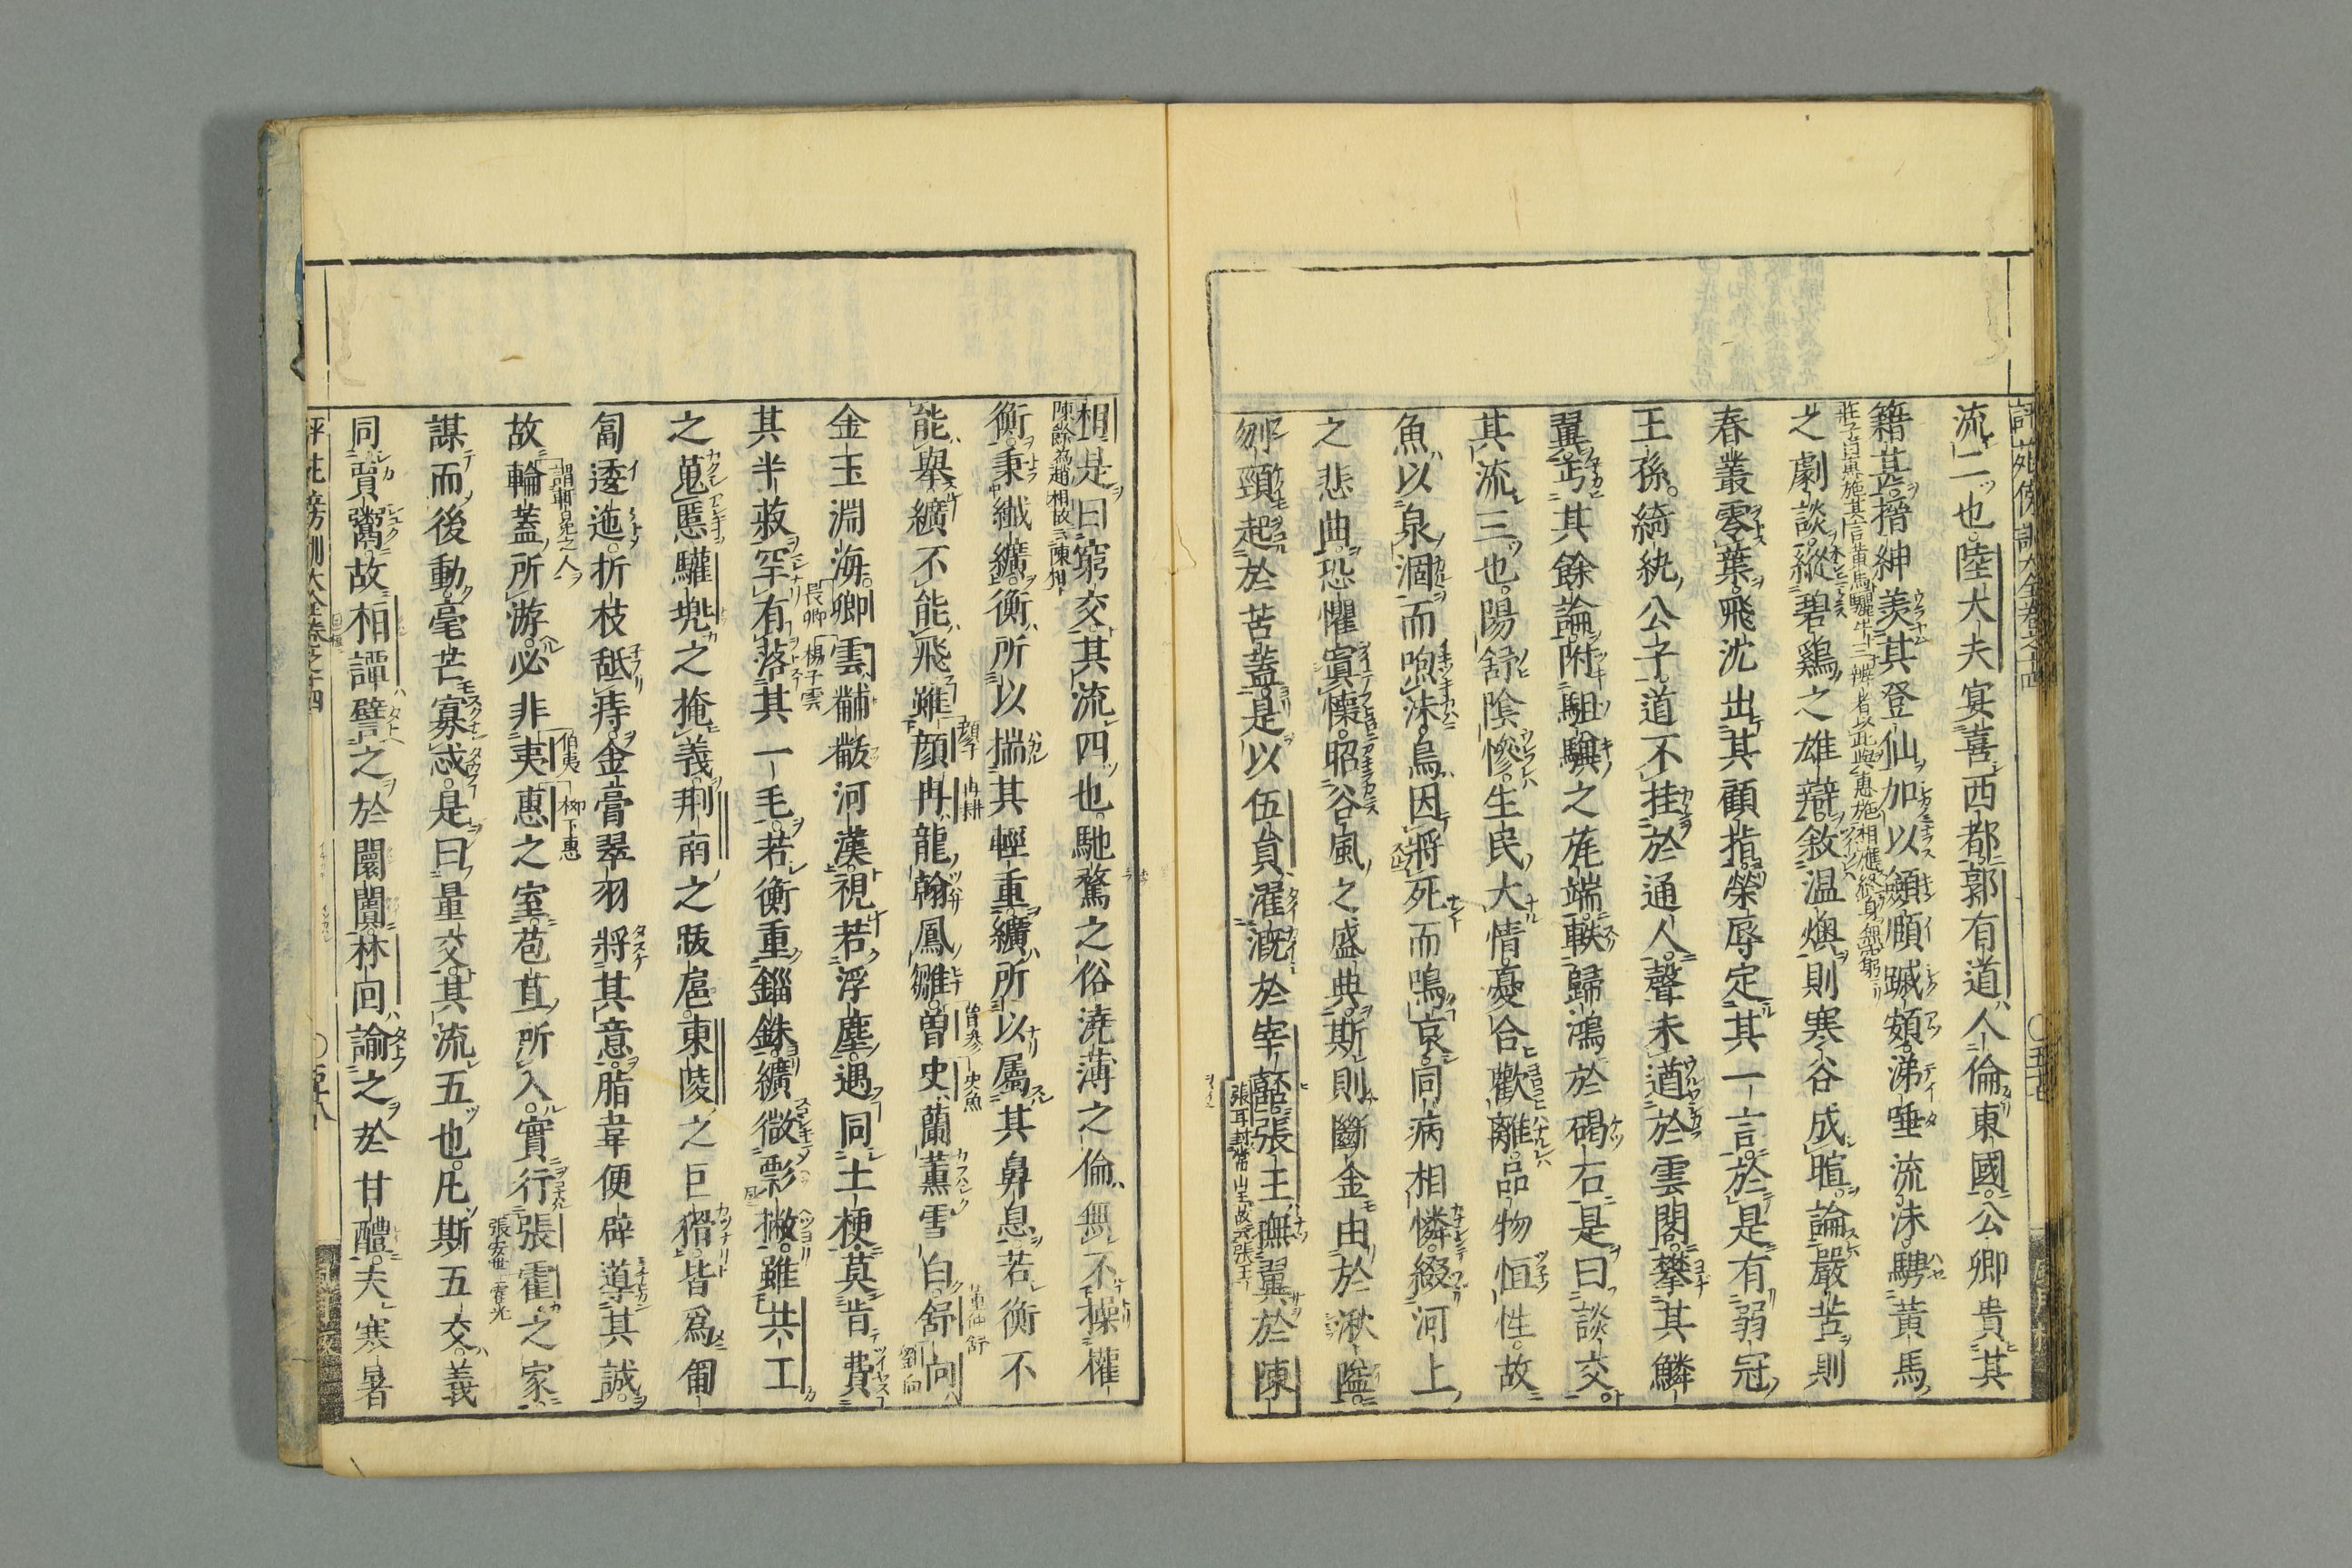 流二也陸大夫宴喜西都郭有道人倫東國公卿貴其
籍甚搢紳羨其登仙加以顩頤蹙頞涕唾流沫騁黃馬
之劇談縱碧鷄之雄辯敘溫燠則寒谷成暄論嚴苦則
春叢零葉飛沈出其顧指榮辱定其一言於是有弱冠
王孫綺紈公子道不挂於通人聲未遒於雲閣攀其鱗
翼丐其餘論附駔驥之旄端軼歸鴻於碣石是曰談交
其流三也陽舒陰慘生民大情憂合歡離品物恒性故
魚以泉涸而呴沫鳥因將死而鳴哀同病相憐綴河上
之悲曲恐懼寘懷昭谷風之盛典斯則斷金由於湫隘
刎頸起於苦蓋是以伍員濯漑於宰嚭張王撫翼於陳
張耳封常山王故云張王
相是曰窮交其流四也馳騖之俗澆薄之倫無不操權
陳餘為趙相故云陳相
衡秉纖纊衡所以揣其輕重纊所以屬其鼻息若衡不
能舉纊不能飛雖顏冉龍翰鳳雛曾史蘭薰雪白舒向
顏子 冉耕 曾參 史魚 董仲舒 劉向
金玉淵海卿雲黼黻河漢視若浮塵遇同土梗莫肯費
長卿 楊子雲
其半菽罕有落其一毛若衡重錙銖纊微影撇雖共工
之蒐慝驩兜之掩義荆南之跋扈東陵之巨猾皆爲匍
匐逶迤折枝舐痔金膏翠羽將其意脂韋便辟導其誠
故輪蓋所游必非夷惠之室苞苴所入實行張霍之家
伯夷 柳下惠 張安世 霍光
謀而後動毫芒寡忒是曰量交其流五也凡斯五交義
同賈鬻故桓譚譬之於闤闠林回諭之於甘醴夫寒暑